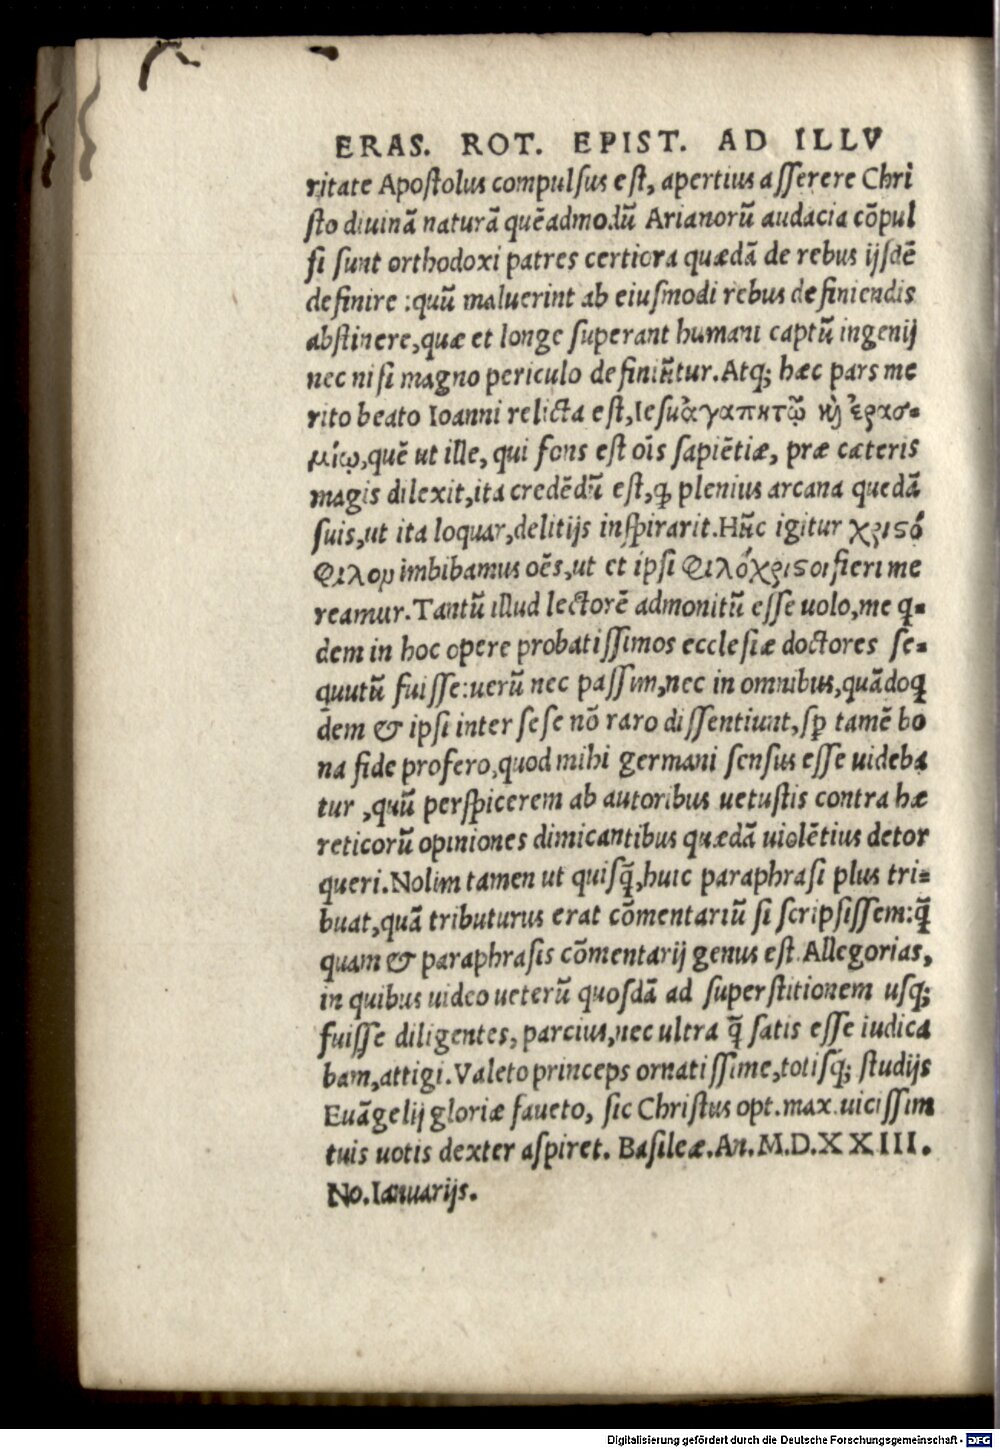 ERAS. ROT. EPIST. AD ILLV
ritate Apostolus compulsus est, apertius asserere Chri
sto diuinā naturā quēadmodū Arianorū audacia cōpul
si sunt orthodoxi patres certiora quædā de rebus ijsdē
definire :quū maluerint ab eiusmodi rebus definiendis
abstinere,quæ et longe superant humani captū ingenij
nec nisi magno periculo definiūtur.Atq; hæc pars me
rito beato Ioanni relicta est,Iesu ἀγαπητῷ ϗ ἐρασ-
μίῳ,quē ut ille, qui fons est oīs sapiētiæ, præ cæteris
magis dilexit,ita credēdū est,ꝙ plenius arcana quedā
suis,ut ita loquar,delitijs inspirarit.Hūc igitur χριϛό
φιλον imbibamus oēs,ut et ipsi φιλόχριϛοι fieri me
reamur.Tantū illud lectorē admonitū esse uolo,me q-
dem in hoc opere probatissimos ecclesiæ doctores se-
quutū fuisse:uerū nec passim,nec in omnibus,quādoq
dem & ipsi inter sese nō raro dissentiunt,sꝑ tamē bo
na fide profero,quod mihi germani sensus esse uideba
tur ,quū perspicerem ab autoribus uetustis contra hæ
reticorū opiniones dimicantibus quædā uiolētius detor
queri.Nolim tamen ut quisq̄,huic paraphrasi plus tri-
buat,quā tributurus erat cōmentariū si scripsissem:q̄
quam & paraphrasis cōmentarij genus est.Allegorias,
in quibus uideo ueterū quosdā ad superstitionem usq;
fuisse diligentes, parcius,nec ultra q̄ satis esse iudica
bam,attigi.Valeto princeps ornatissime,totisq; studijs
Euāgelij gloriæ faueto, sic Christus opt.max.uicissim
tuis uotis dexter aspiret. Basileæ.An.M.D.XXIII.
No.Ianuarijs.
Digitalisierung gefördert durch die Deutsche Forschungsgemeinschaft - DFG